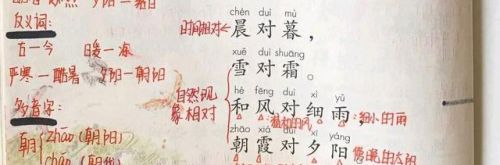 反义词:
古—今
严寒—酷暑 夕阳—朝阳
多音字:
朝 zhāo (朝阳)
chén duì mù
时间相对 晨对暮，
xuě duì shuāng
雪对霜。
自然现
象相对
hé fēng duì xì yǔ
和风对细雨， 细小的雨
zhāo xiá duì xī yáng
朝霞对夕阳